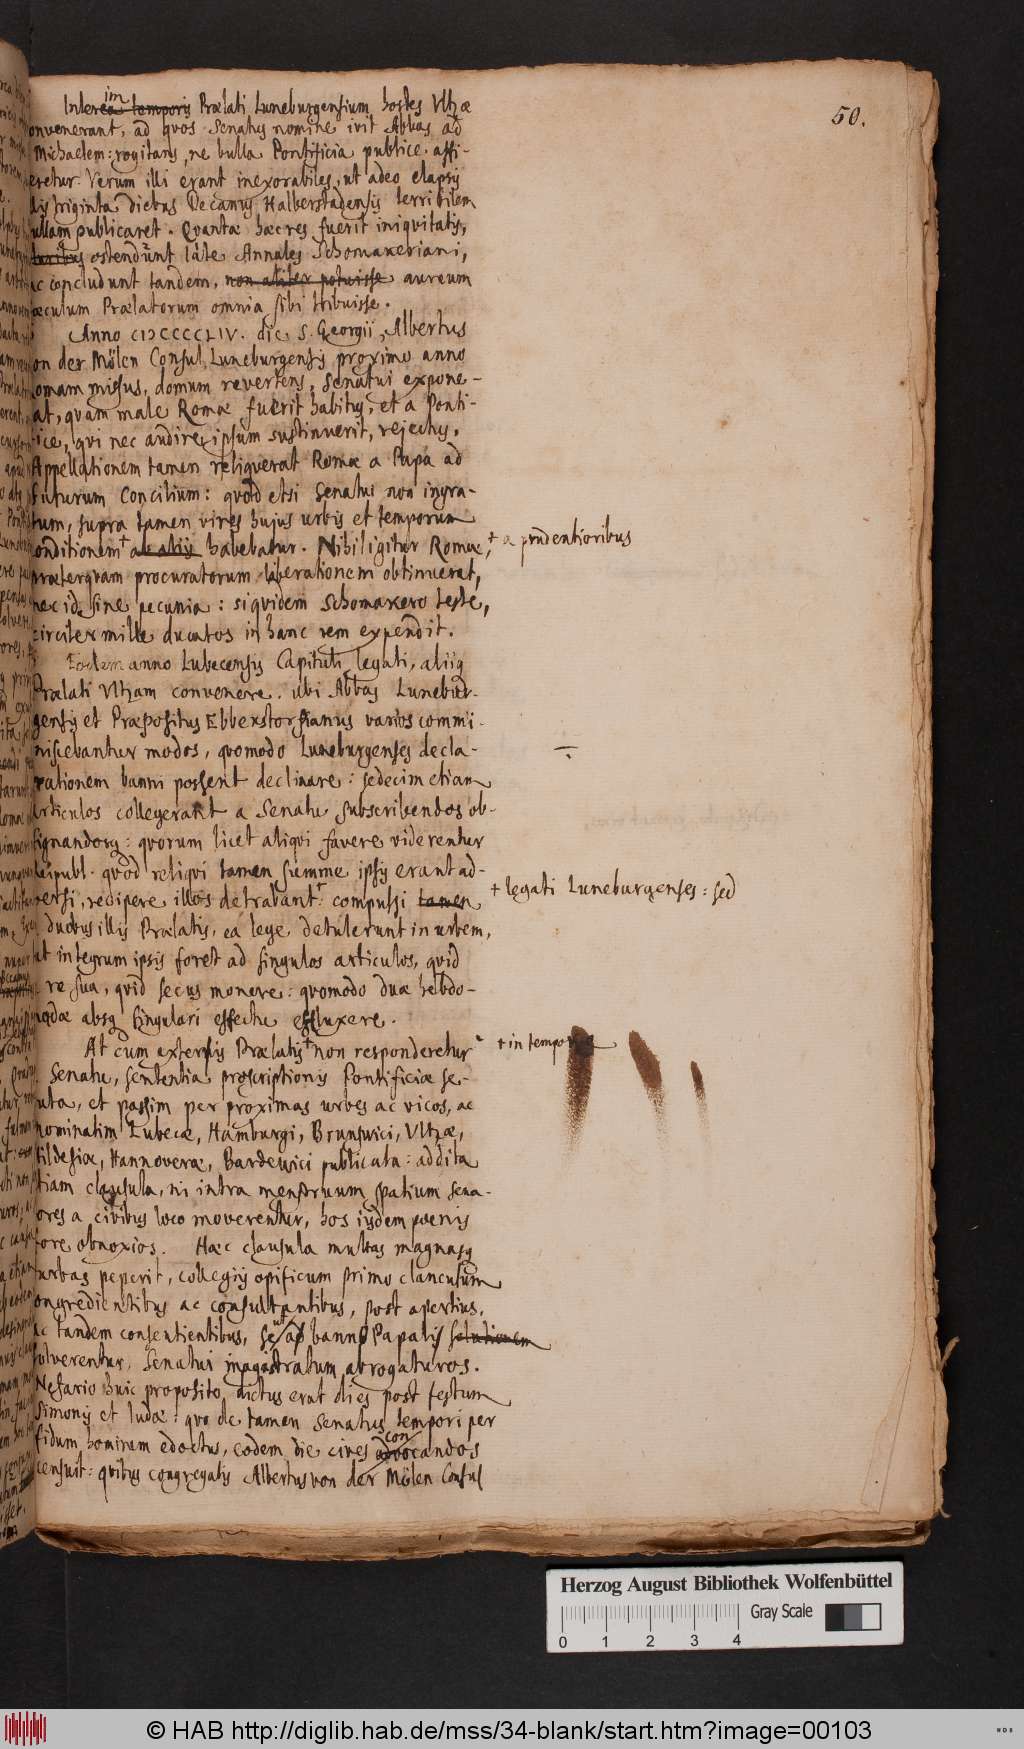 50.
im
Interea temporis Prælati Luneburgensium hostes Vltzæ
onvenerant, ad quos Senatus nomine ivit Abbas ad
Michaelem: rogitans, ne bulla Pontificia publice affi-
eretur. Verum illi erant inexorabiles, ut adeo elapsis
triginta diebus Decanus Halberstadensis terribilem
ullam publicaret. Quanta hæc res fuerit iniquitatis,
ostendunt late Annales Schomakeriani,
ac concludunt tandem, non aliter potuisse aureum
æculum Prælatorum omnia sibi tribuisse.
Anno CIƆCCCCLIV. die S. Georgii, Albertus
on der Mölen Consul Luneburgensis proximo anno
omam missus, domum revertens, Senatui expone-
at, quam male Romæ fuerit habitus, et a Ponti-
ice, qui nec audire ipsum sustinuerit, rejectus.
Appellationem tamen reliquerat Romæ a Papa ad
futurum Concilium: quod etsi Senatui non ingra-
tum, supra tamen vires hujus urbis et temporum
onditionem + ab aliis habebatur. Nihil igitur Romæ, + a prudentioribus
præterquam procuratorum liberationem obtinuerat,
nec id sine pecunia: siquidem Schomakero teste,
circiter mille ducatos in hanc rem expendit.
Eodem anno Lubecensis Capituli legati, aliiq
Prælati Vltzam convenere. ubi Abbas Lunebur-
gensis et Præpositus Ebbekstorpianus varios commi-
niscebantur modos, quomodo Luneburgenses decla-
rationem banni possent declinare: sedecim etiam
articulos collegerant a Senatu subscribendos ob-
signandosq: quorum licet aliqui favere viderentur
Reipubl. quod reliqui tamen summe ipsis erant ad-
versi, recipere illos detrabant + compulsi tamen + legati Luneburgenses: sed
duobus illis Prælatis, ea lege, detulerunt in urbem,
ut integrum ipsis foret ad singulos articulos, quid
re sua, quid secus monere: quomodo duæ hebdo-
madæ absq singulari effectu effluxere.
At cum externis Prælatis + non responderetur + in tempore
Senatu, sententia proscriptionis Pontificiæ se-
uta, et passim per proximas urbes ac vicos, ac
nominatim Lubecæ, Hamburgi, Brunsvici, Vltzæ,
Hildesiæ, Hannoveræ, Bardewici publicata: addita
etiam clausula, ni intra menstruum spatium sena-
ores a civibus loco moverentur, hos iisdem poenis
fore obnoxios. Hæc clausula multas magnasq
turbas peperit, collegiis opificum primo clanculum
ongredientibus ac consultantibus, post apertius,
ac tandem consentientibus, se ut a banno Papali solutionem
solverentur, Senatui magastratum abrogaturos.
Nefario huic proposito dictus erat dies post festum
Simonis et Iudæ: quo de tamen Senatus tempori per
con
fidum hominem edoctus, eodem die cives advocandos
censuit: quibus congregatis Albertus von der Mölen Consul
Herzog August Bibliothek Wolfenbüttel
Gray Scale
0 1 2 3 4
© HAB http://diglib.hab.de/mss/34-blank/start.htm?image=00103